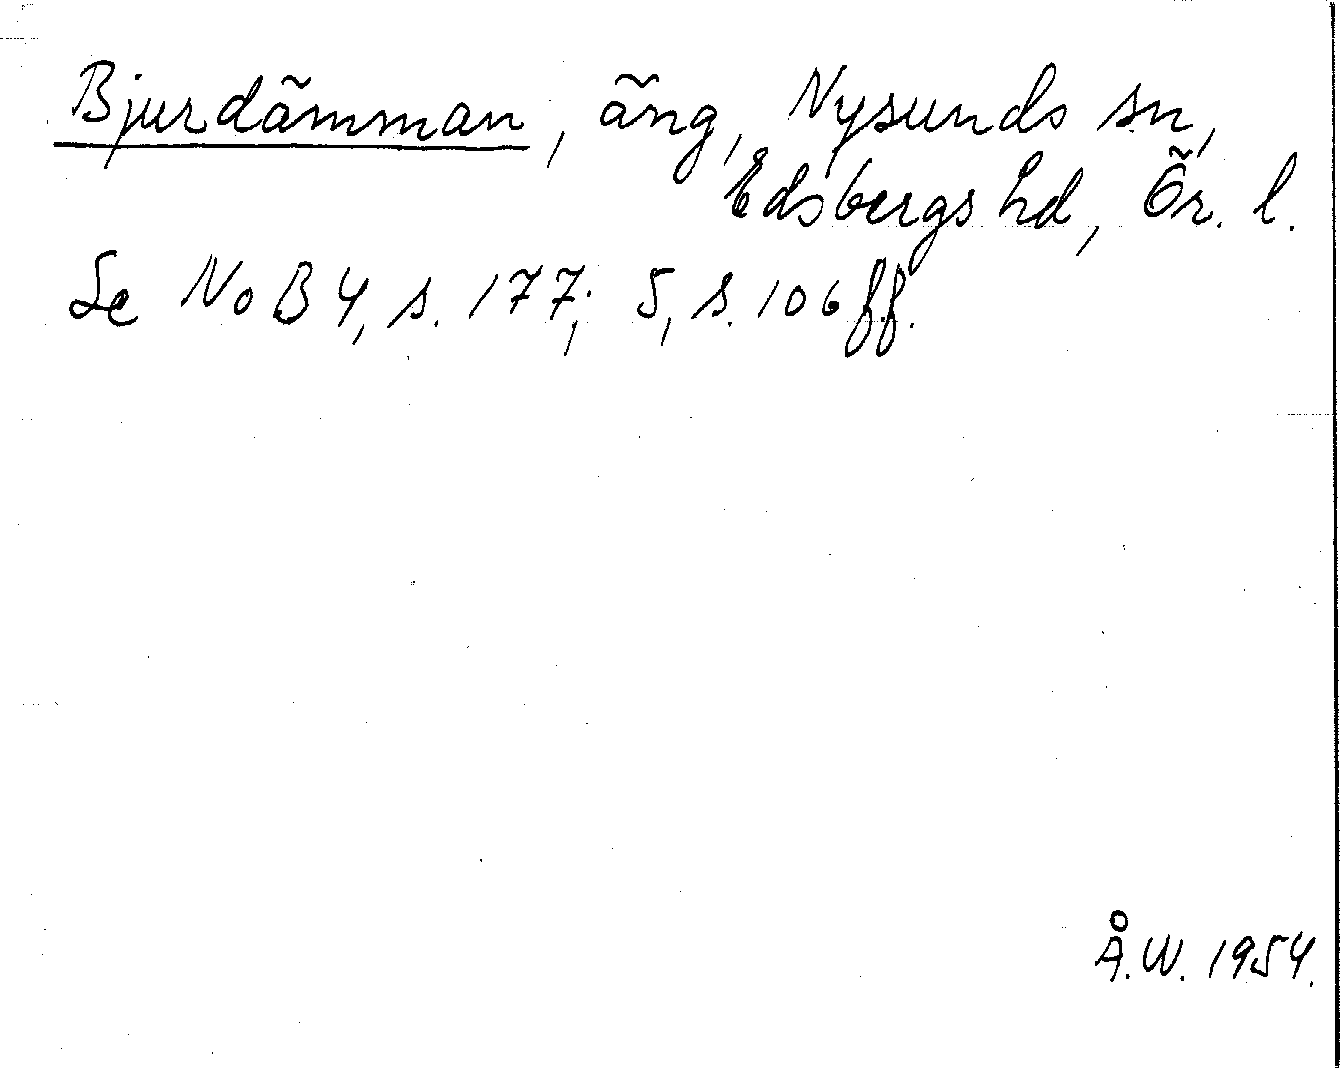 Bjurdämman, äng, Nysunds sn,
Edsbergs hd, Ör. l.
Se NoB 4, s. 177; 5, s. 106 ff.
Å.W. 1954.